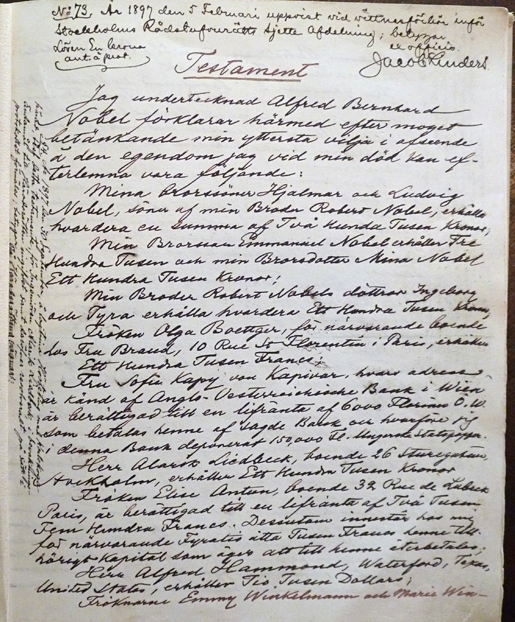 No 73. År 1897 den 5 Februari uppvist vid vittnesförhör inför
Stockholms Rådstufvurätts sjette Afdelning; betyga
Lösen En krona
ex officio.
Testament
Jag undertecknad Alfred Bernhard
Nobel förklarar härmed efter moget
betänkande min yttersta vilja i afseende
å den egendom jag vid min död kan ef-
terlemna vara följande:
Mina brorssöner Hjalmar och Ludvig
Nobel, söner af min Broder Robert Nobel, erhålla
hvardera en summa af Två Hundra Tusen Kronor;
Min Brorsson Emmanuel Nobel erhåller Tre
Hundra Tusen och min Brorsdotter Mina Nobel
Ett Hundra Tusen Kronor;
Min Broder Robert Nobels döttrar Ingeborg
och Tyra erhålla hvardera Ett Hundra Tusen Kronor;
Fröken Olga Boettger, för närvarande boende
hos Fru Brand, 10 Rue St Florentin i Paris, erhåller
Ett Hundra Tusen Francs;
Fru Sofie Kapy von Kapivar, hvars adress
är känd af Anglo-Oesterreichische Bank i Wien
är berättigad till en lifränta af 6000 Florins Ö.W.
som betalas henne af sagde Bank och hvarföre jag
i denna Bank deponerat 150,000 Fl. i Ungerska Statspapper
Herr Alarik Liedbeck, boende 26 Sturegatan,
Stockholm, erhåller Ett Hundra Tusen Kronor
Fröken Elise Antun, boende 32 Rue de Lubeck
Paris, är berättigad till en lifränta af Två Tusen
Fem Hundra Francs. Desutom innestår hos mig
för närvarande Fyratio åtta Tusen Francs henne till-
hörigt kapital som äger att till henne återbetalas;
Herr Alfred Hammond, Waterford, Texas,
United States, erhåller Tio Tusen Dollars;
Fröknarne Emmy Winkelmann och Marie Win-